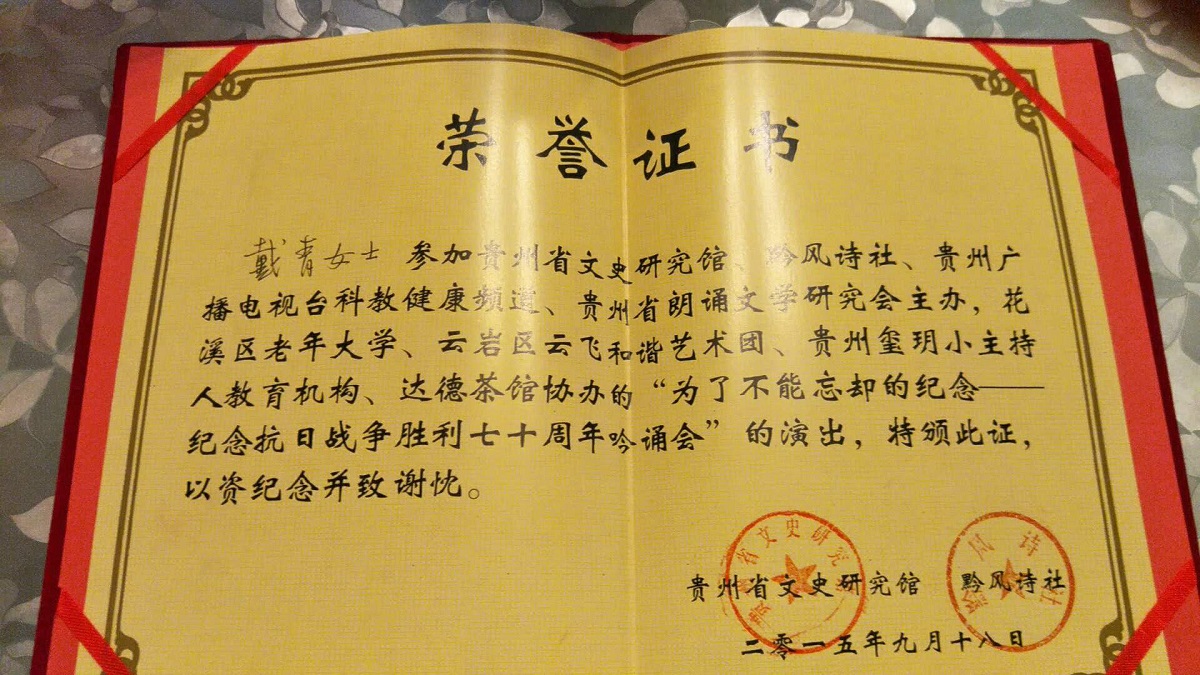 荣誉证书
戴青女士 参加贵州省文史研究馆、黔风诗社、贵州广
播电视台科教健康频道、贵州省朗诵文学研究会主办，花
溪区老年大学、云岩区云飞和谐艺术团、贵州玺玥小主持
人教育机构、达德茶馆协办的“为了不能忘却的纪念——
纪念抗日战争胜利七十周年吟诵会”的演出，特颁此证，
以资纪念并致谢忱。
贵州省文史研究馆 黔风诗社
二零一五年九月十八日
贵州省文史研究馆
黔风诗社